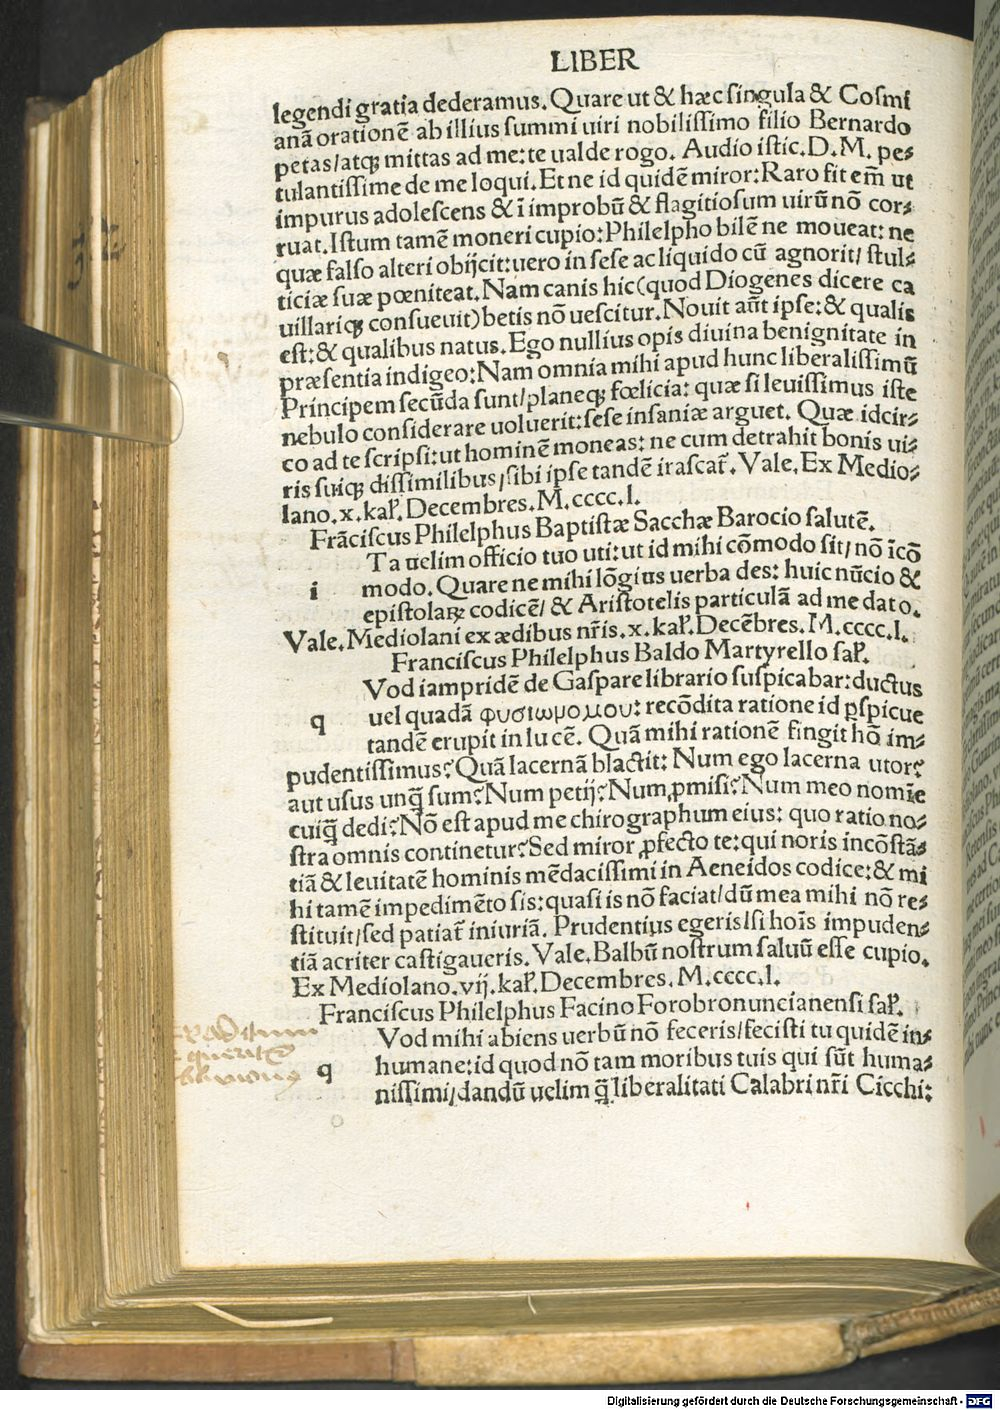 LIBER
legendi gratia dederamus. Quare ut & hæc singula & Cosmi
anā orationē ab illius summi uiri nobilissimo filio Bernardo
petas/atqꝫ mittas ad me: te ualde rogo. Audio istic. D. M. pe⸗
tulantissime de me loqui. Et ne id quidē miror: Raro fit em̄ ut
impurus adolescens & ī improbū & flagitiosum uirū nō cor⸗
ruat. Istum tamē moneri cupio: Philelpho bilē ne moueat: ne
quæ falso alteri obijcit: uero in sese ac liquido cū agnorit/ stul⸗
ticiæ suæ pœniteat. Nam canis hic (quod Diogenes dicere ca
uillariqꝫ consueuit) betis nō uescitur. Nouit aūt ipse: & qualis
est: & qualibus natus. Ego nullius opis diuina benignitate in
præsentia indigeo: Nam omnia mihi apud hunc liberalissimū
Principem secūda sunt/planeqꝫ fœlicia: quæ si leuissimus iste
nebulo considerare uoluerit: sese insaniæ arguet. Quæ idcir⸗
co ad te scripsi: ut hominē moneas: ne cum detrahit bonis ui⸗
ris suiqꝫ dissimilibus/sibi ipse tandē irascat̄. Vale. Ex Medio⸗
lano. x. kaƚ. Decembres. M. cccc. l.
Frāciscus Philelphus Baptistæ Sacchæ Barocio salutē.
i Ta uelim officio tuo uti: ut id mihi cōmodo sit/ nō īcō
modo. Quare ne mihi lōgius uerba des: huic nūcio &
epistolaꝝ codicē/ & Aristotelis particulā ad me dato.
Vale. Mediolani ex ædibus nr̄is. x. kaƚ. Decēbres. M. cccc. l.
Franciscus Philelphus Baldo Martyrello saƚ.
q Vod iampridē de Gaspare librario suspicabar: ductus
uel quadā φυσιωμομου: recōdita ratione id ꝑspicue
tandē erupit in lucē. Quā mihi rationē fingit hō im⸗
pudentissimus? Quā lacernā blactit: Num ego lacerna utor?
aut usus unq̄ sum? Num petij? Num ꝓmisi? Num meo nomīe
cuiq̄ dedi? Nō est apud me chirographum eius: quo ratio no⸗
stra omnis continetur? Sed miror ꝓfecto te: qui noris incōstā⸗
tiā & leuitatē hominis mēdacissimi in Aeneidos codice: & mi
hi tamē impedimēto sis: quasi is nō faciat/ dū mea mihi nō re⸗
stituit/sed patiat̄ iniuriā. Prudentius egeris/si hoīs impuden⸗
tiā acriter castigaueris. Vale. Balbū nostrum saluū esse cupio.
Ex Mediolano. vij. kaƚ. Decembres. M. cccc. l.
Franciscus Philelphus Facino Forobronuncianensi saƚ.
q Vod mihi abiens uerbū nō feceris/fecisti tu quidē in⸗
humane: id quod nō tam moribus tuis qui sūt huma⸗
nissimi/dandū uelim q̄ liberalitati Calabri nr̄i Cicchi:
Digitalisierung gefördert durch die Deutsche Forschungsgemeinschaft - DFG